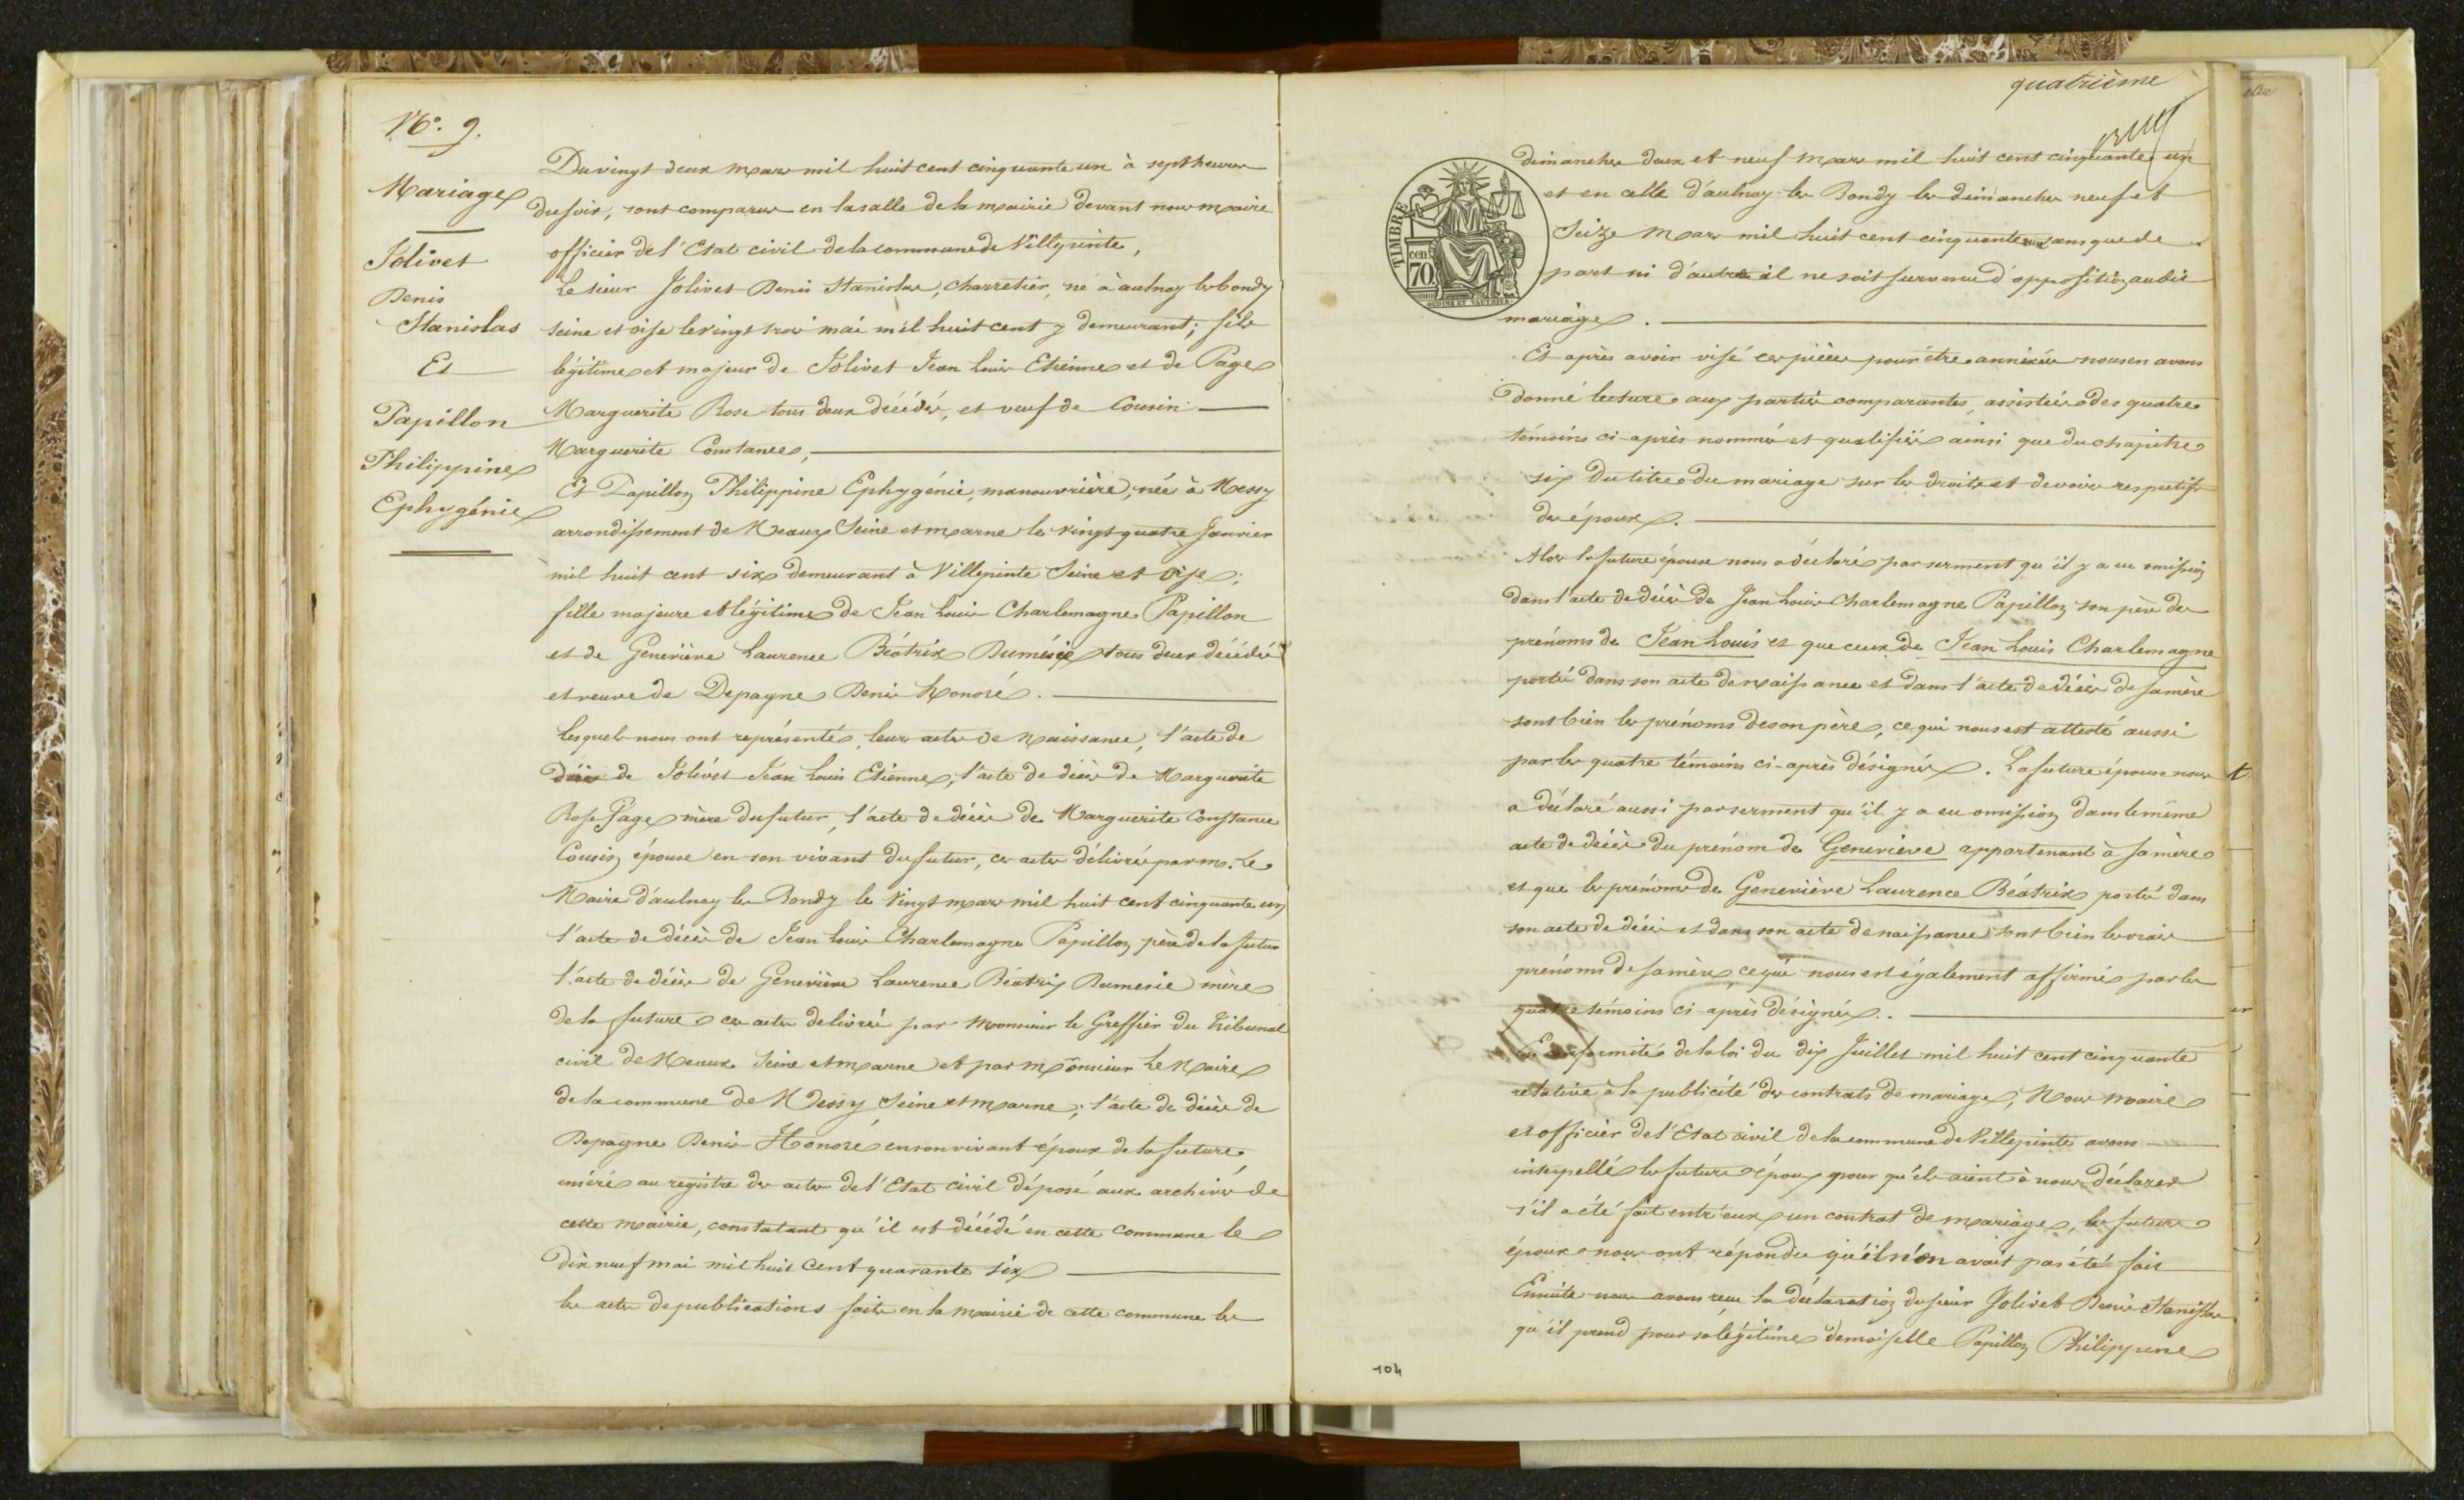 N°. 9.
Mariage
Jolivet
Denis
Stanislas
Et
Papillon
Philippine
Ephygénie
Du vingt deux mars mil huit cent cinquante un à sept heures
du soir, sont comparus en la salle de la mairie devant nous maire
officier de l'Etat civil de la commune de Villepinte,
Le sieur Jolivet Denis Stanislas, charretier, né à aulnay les bondy
seine et oise le vingt trois mai mil huit cent y demeurant; fils
légitime et majeur de Jolivet Jean Louis Etienne et de Page
Marguerite Rose tous deux décédés, et veuf de Cousin
Marguerite Constance,
Et Papillon Philippine Ephygénie, manouvrière, née à Messy
arrondissement de Meaux Seine et marne le vingt quatre Janvier
mil huit cent six demeurant à Villepinte Seine et Oise;
fille majeure et légitime de Jean Louis Charlemagne Papillon
et de Geneviève Laurence Béatrix Dumésie tous deux décédés
et veuve de Depagne Denis Honoré.
Lesquels nous ont représentés, leurs actes de naissance, l'acte de
décès de Jolivet Jean Louis Etienne, l'acte de décès de Marguerite
Rose Page mère du futur, l'acte de décès de Marguerite Constance
Cousin épouse en son vivant du futur, ces actes délivrés par m. Le
Maire d'aulnay les Bondy le vingt mars mil huit cent cinquante un
l'acte de décès de Jean Louis Charlemagne Papillon père de la futur
l'acte de décès de Geneviève Laurence Béatrix Dumesie mère
de la future ces actes délivrés par monsieur le Greffier du Tribunal
civil de Meaux Seine et marne et par monsieur Le Maire
de la commune de Messy Seine et marne; l'acte de décès de
Depagne Denis Honoré en son vivant époux de la future,
inséré au registre des actes de l'Etat civil déposé aux archives de
cette mairie, constatant qu'il est décédé en cette commune le
dix neuf mai mil huit cent quarante six
les actes de publications faits en la mairie de cette commune les
quatrième
TIMBRE
70 cen
dimanches deux et neuf mars mil huit cent cinquante un
et en celle d'aulnay-les Bondy les dimanches neuf et
Seize mars mil huit cent cinquante un sans que de
part ni d'autre il ne soit survenu d'opposition audit
mariage.
Et après avoir visé ces pièces pour être annexées nous en avons
donné lecture aux parties comparantes, assistées des quatre
témoins ci-après nommés et qualifiés ainsi que du chapitre
six du titre du mariage sur les droits et devoirs respectifs
des époux.
Alors la future épouse nous a déclaré par serment qu'il y a eu omission
dans l'acte de décès de Jean Louis Charlemagne Papillon son père des
prénoms de Jean Louis et que ceux de Jean Louis Charlemagne
portés dans son acte de naissance et dans l'acte de décès de sa mère
sont bien les prénoms de son père, ce qui nous est attesté aussi
par les quatre témoins ci-après désignés. La future épouse nous
a déclaré aussi par serment qu'il y a eu omission dans le même
acte de décès du prénom de Geneviève appartenant à sa mère
et que les prénoms de Geneviève Laurence Béatrix portés dans
son acte de décès et dans son acte de naissance sont bien les vrais
prénoms de sa mère, ce qui nous est également affirmé par les
quatre témoins ci-après désignés.
En conformité de la loi du dix Juillet mil huit cent cinquante
relative à la publicité des contrats de mariage, Nous maire
et officier de l'Etat civil de la commune de Villepinte avons
interpellé les futurs époux pour qu'ils aient à nous déclarer
s'il a été fait entr'eux un contrat de mariage, les futurs
époux nous ont répondu qu'il n'en avait pas été fait
Ensuite nous avons reçu la déclaration du sieur Jolivet Denis Stanislas
qu'il prend pour sa légitime demoiselle Papillon Philippine
104